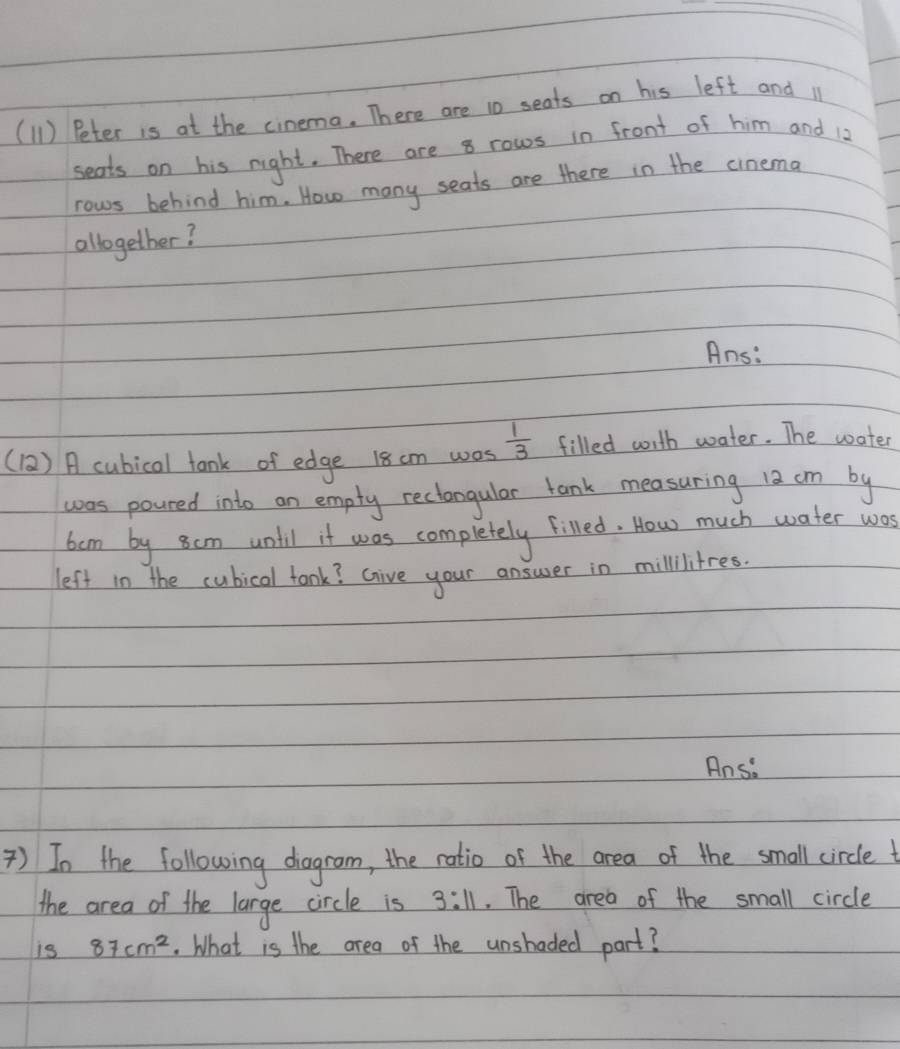 (11) Peter is at the cinema. There are 10 seats on his left and 11
seats on his right. There are 8 rows in front of him and 12
rows behind him. How many seats are there in the cinema
altogether?
Ans:
(12) A cubical tank of edge 18 cm was 1/3 filled with water. The water
was poured into an empty rectangular tank measuring 12 cm by
6cm by 8cm until it was completely filled. How much water was
left in the cubical tank? Give your answer in millilitres.
Ans:
7) In the following diagram, the ratio of the area of the small circle t
the area of the large circle is 3:11. The area of the small circle
is 87cm². What is the area of the unshaded part?